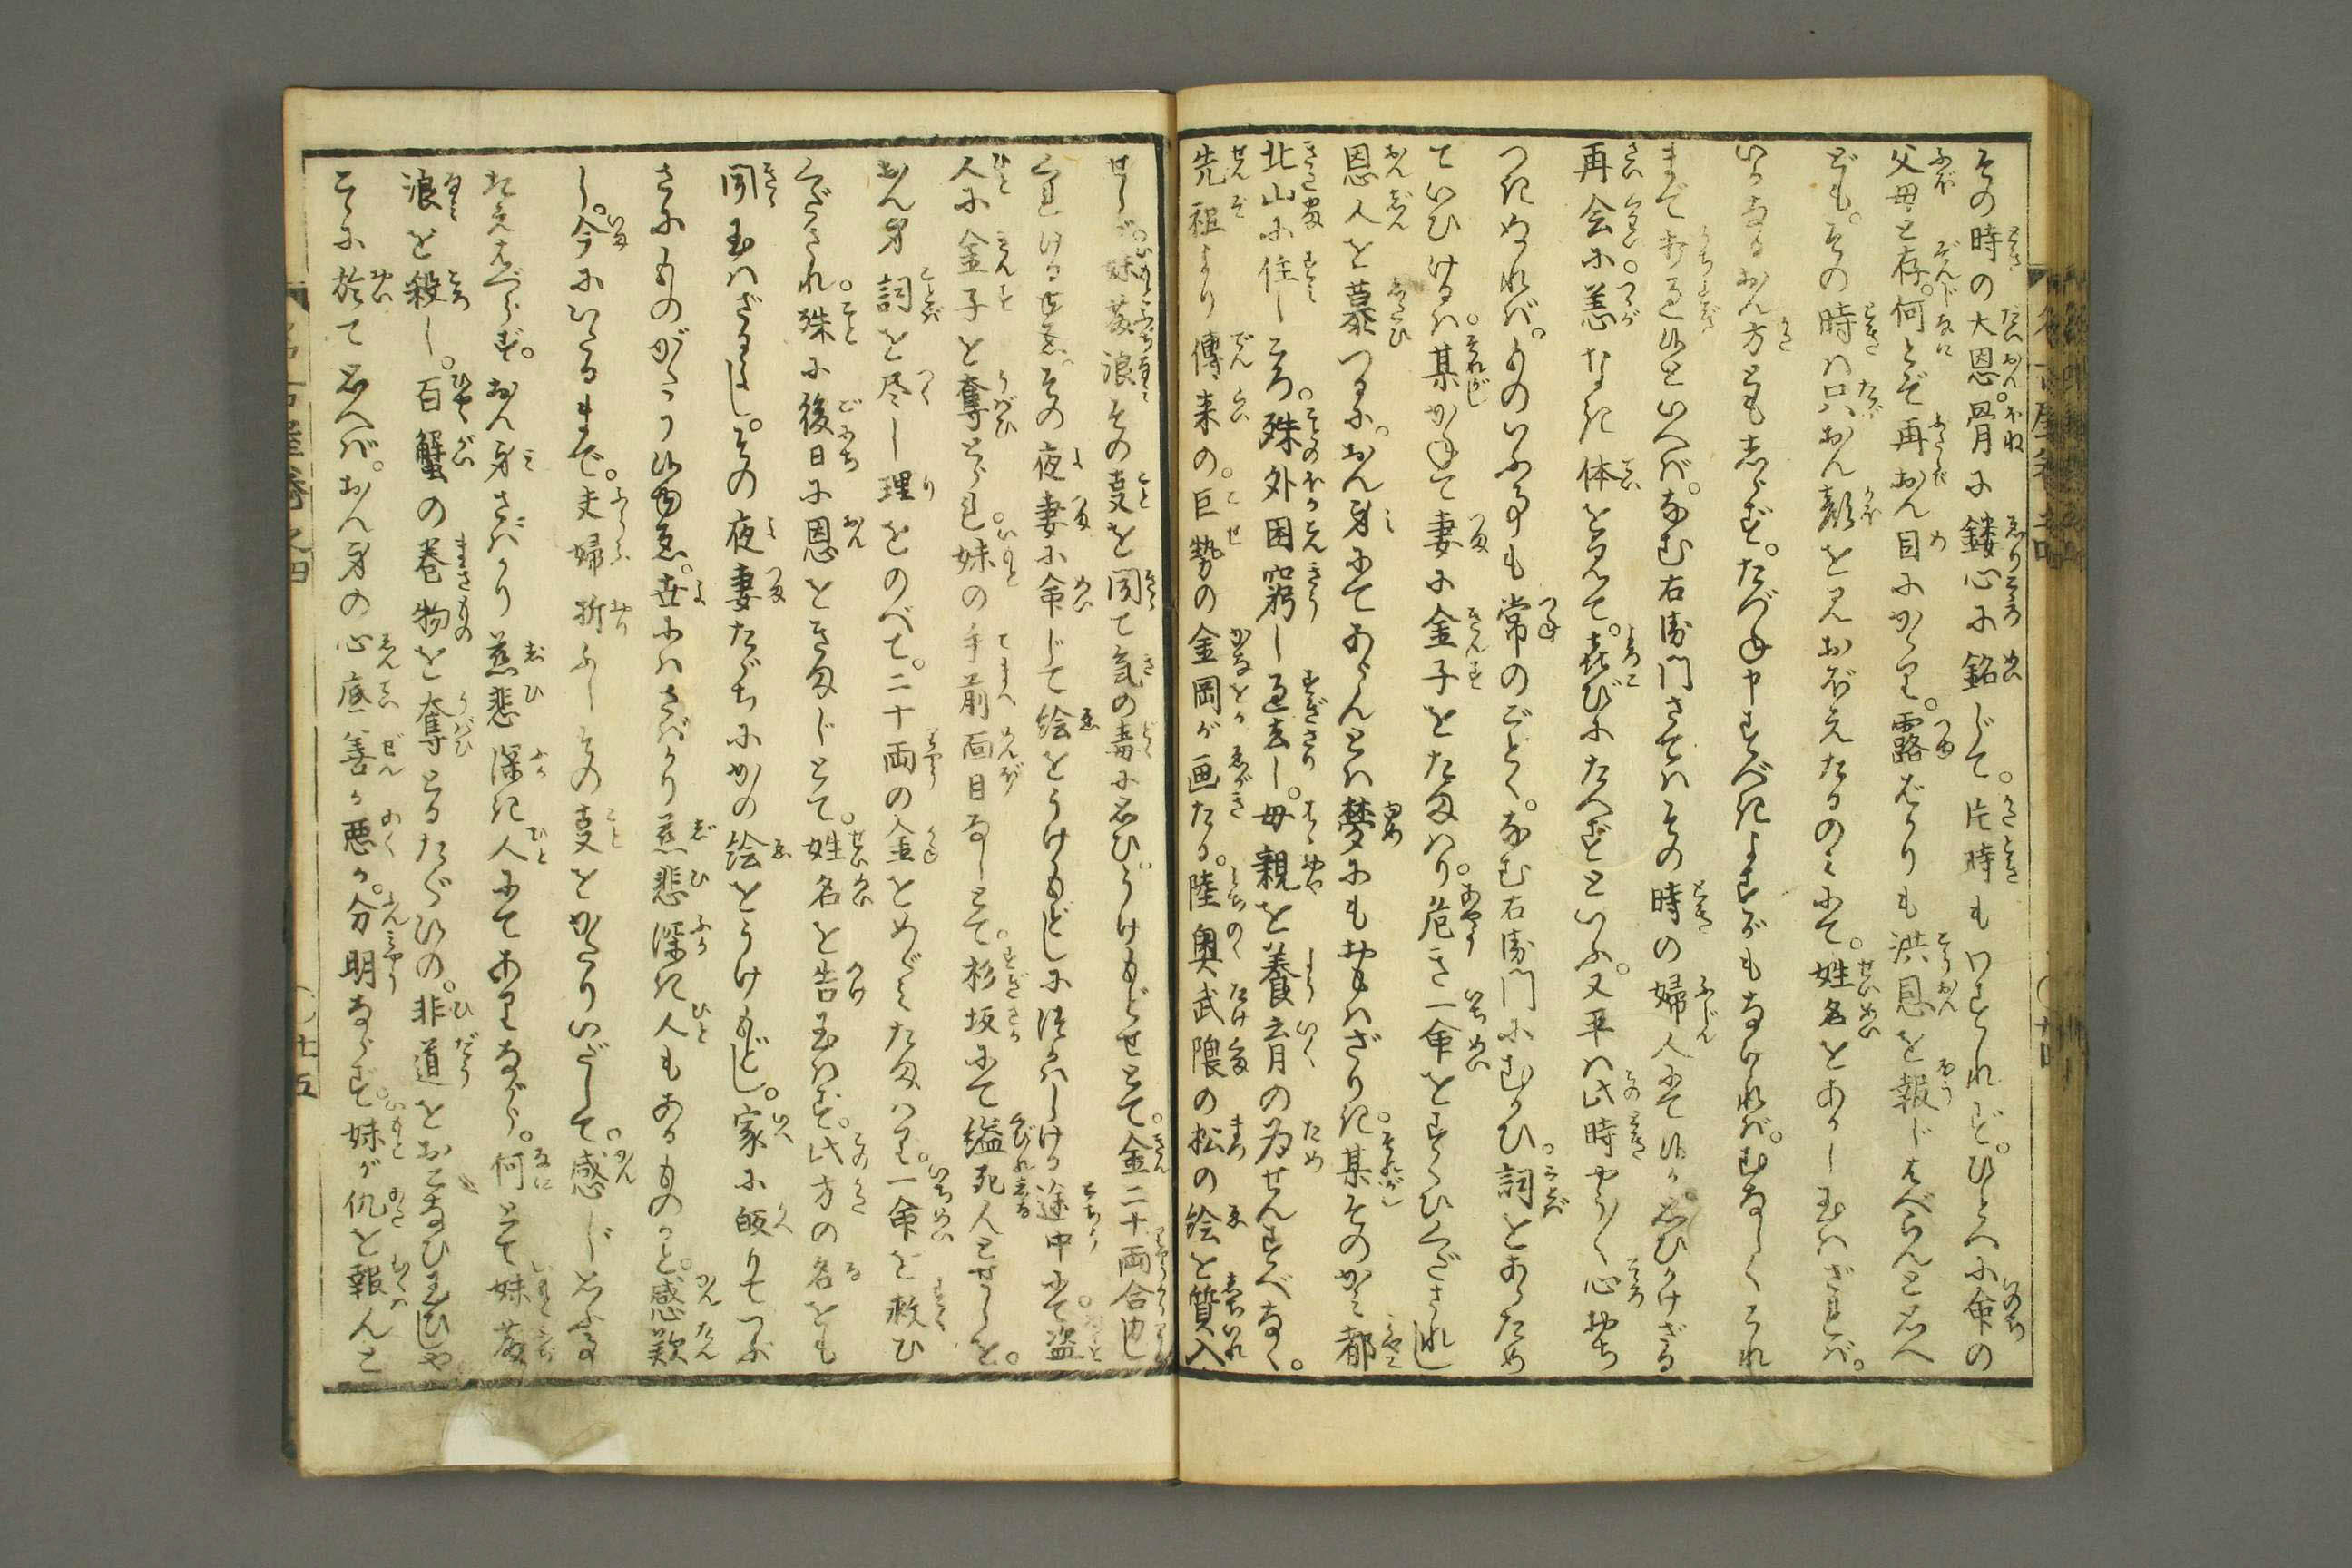 その時の大恩。骨に鏤心に銘じて。片時もわすれず。ひとへに命の
父母と存。何とぞ再おん目にかゝり。露ばかりも洪恩を報じはべらんと思へ
ども。その時は只おん顔を見おぼえたるのみにて。姓名をあかし玉はざれば。
いかなるおん方ともしらず。たづね申すべきよすがもなければ。むなしくこれ
まで打過候といへば。なむ右衛門さてはその時の婦人にて候か。思ひかけざる
再会に。恙なき体を見て。喜びにたへずといふ。又平は此時やう〳〵心おち
つきぬれば。ものいふ事も常のごとく。なむ右衛門にむかひ。詞をあらため
ていひけるは。某かねて妻に金子をたまはり。危き一命をすくひくだされし
恩人を慕つるに。おん身にてあらんとは夢にもおもはざりき。某そのかみ都
北山に住しころ。殊外困窮し過去し。母親を養育の為せんすべなく。
先祖より傳来の。巨勢の金岡が画たる。陸奥武隈の松の絵を質入
せしが。妹藤浪その事を聞て気の毒に思ひ。うけもどせとて。金二十両合力し
くれける故。その夜妻に命じて絵をうけもどしに遣はしける途中にて。盗
人に金子を奪とられ。妹の手前面目なしとて。杉坂にて縊死んとせしを。
おん身詞を尽し理をのべて。二十両の金をめぐみたまはり。一命を救ひ
くだされ。殊に後日に恩をきまじとて。姓名を告玉はず。此方の名をも
聞玉はざるよし。その夜妻たゞちにかの絵をうけもどし。家に皈りてつぶ
さにものがたり候ゆゑ。世にはさばかり慈悲深き人もあるものかと。感歎
し。今にいたるまで。夫婦折ふしその事をかたりいだして。感じ思ふ事
たえはべらず。おん身さばかり慈悲深き人にてありながら。何とて妹藤
浪を殺し。百蟹の巻物を奪とるたぐひの。非道をおこなひ玉ひしや
こゝに於て思へば。おん身の心底善か悪か。分明ならず。妹が仇を報んと